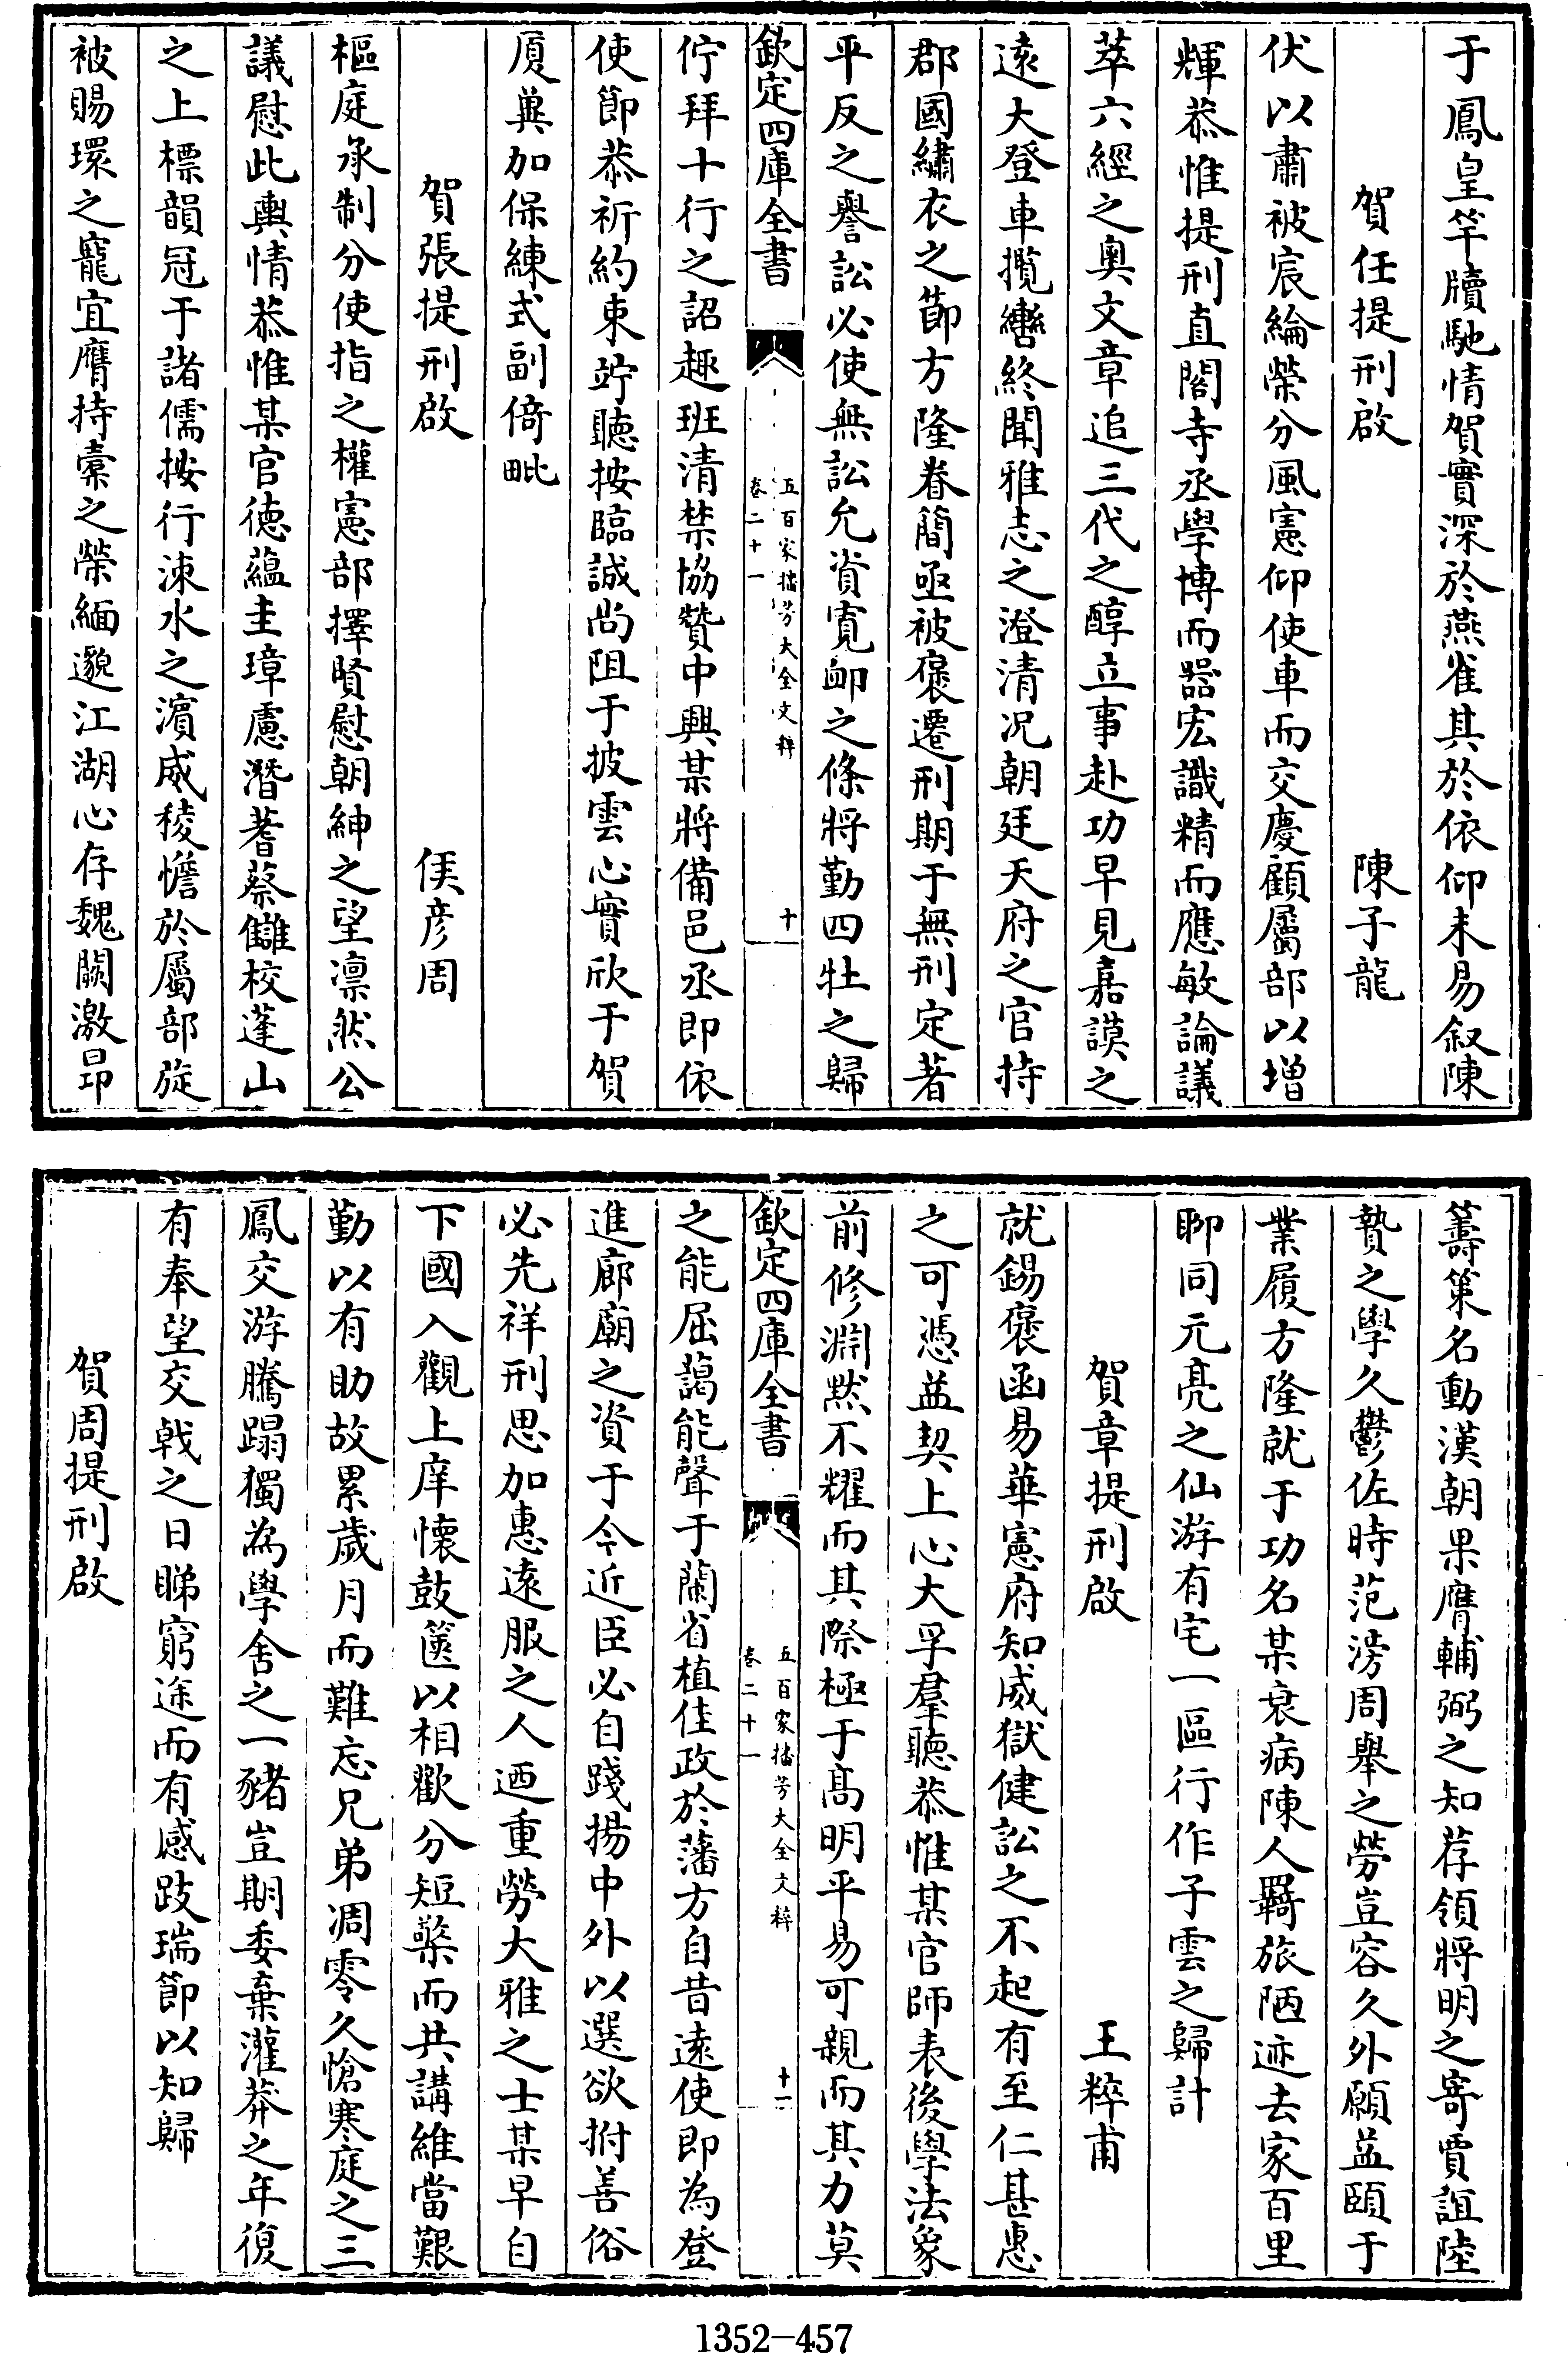 于鳳皇竿牘馳情賀實深於燕雀其於依仰未易叙陳
賀任提刑啟　陳子龍
伏以肅被宸綸榮分風憲仰使車而交慶顧屬部以增
輝恭惟提刑直閣寺丞學博而器宏識精而應敏論議
萃六經之奧文章追三代之醇立事赴功早見嘉謨之
遠大登車攬轡終聞雅志之澄清况朝廷天府之官持
郡國繡衣之節方隆眷簡亟被褒遷刑期于無刑定著
平反之譽訟必使無訟允資寛卹之條將勤四牡之歸
欽定四庫全書　五百家播芳大全文粹　卷二十一　十
佇拜十行之詔趣班清禁協贊中興某將備邑丞即依
使節恭祈約束竚聽按臨誠尚阻于披雲心實欣于賀
厦兾加保練式副倚毗
賀張提刑啟　侯彦周
樞庭承制分使指之權憲部擇賢慰朝紳之望凛然公
議慰此輿情恭惟某官徳蘊圭璋慮潛蓍蔡讎校蓬山
之上標韻冠于諸儒按行涑水之濵威稜憺於屬部旋
被賜環之寵宜膺持橐之榮緬邈江湖心存魏闕激昂
籌策名動漢朝果膺輔弼之知荐領將明之寄賈誼陸
贄之學久鬱佐時范滂周舉之勞豈容久外願益頤于
業履方隆就于功名某衰病陳人羇旅陋迹去家百里
聊同元亮之仙游有宅一區行作子雲之歸計
賀章提刑啟　王粹甫
就錫褒函易華憲府知威獄健訟之不起有至仁甚惠
之可憑益契上心大孚羣聽恭惟某官師表後學法象
前修淵然不耀而其際極于髙明平易可親而其力莫
欽定四庫全書　五百家播芳大全文粹　卷二十一　十一
之能屈藹能聲于蘭省植佳政於藩方自昔遠使即為登
進廊廟之資于今近臣必自踐揚中外以選欲拊善俗
必先祥刑思加惠遠服之人迺重勞大雅之士某早自
下國入觀上庠懷鼓篋以相歡分短檠而共講維當艱
勤以有助故累歲月而難忘兄弟凋零久愴寒庭之三
鳳交游騰蹋獨為學舍之一豬豈期委棄灌莽之年復
有奉望交戟之日睇窮途而有感跂瑞節以知歸
賀周提刑啟
1352-457